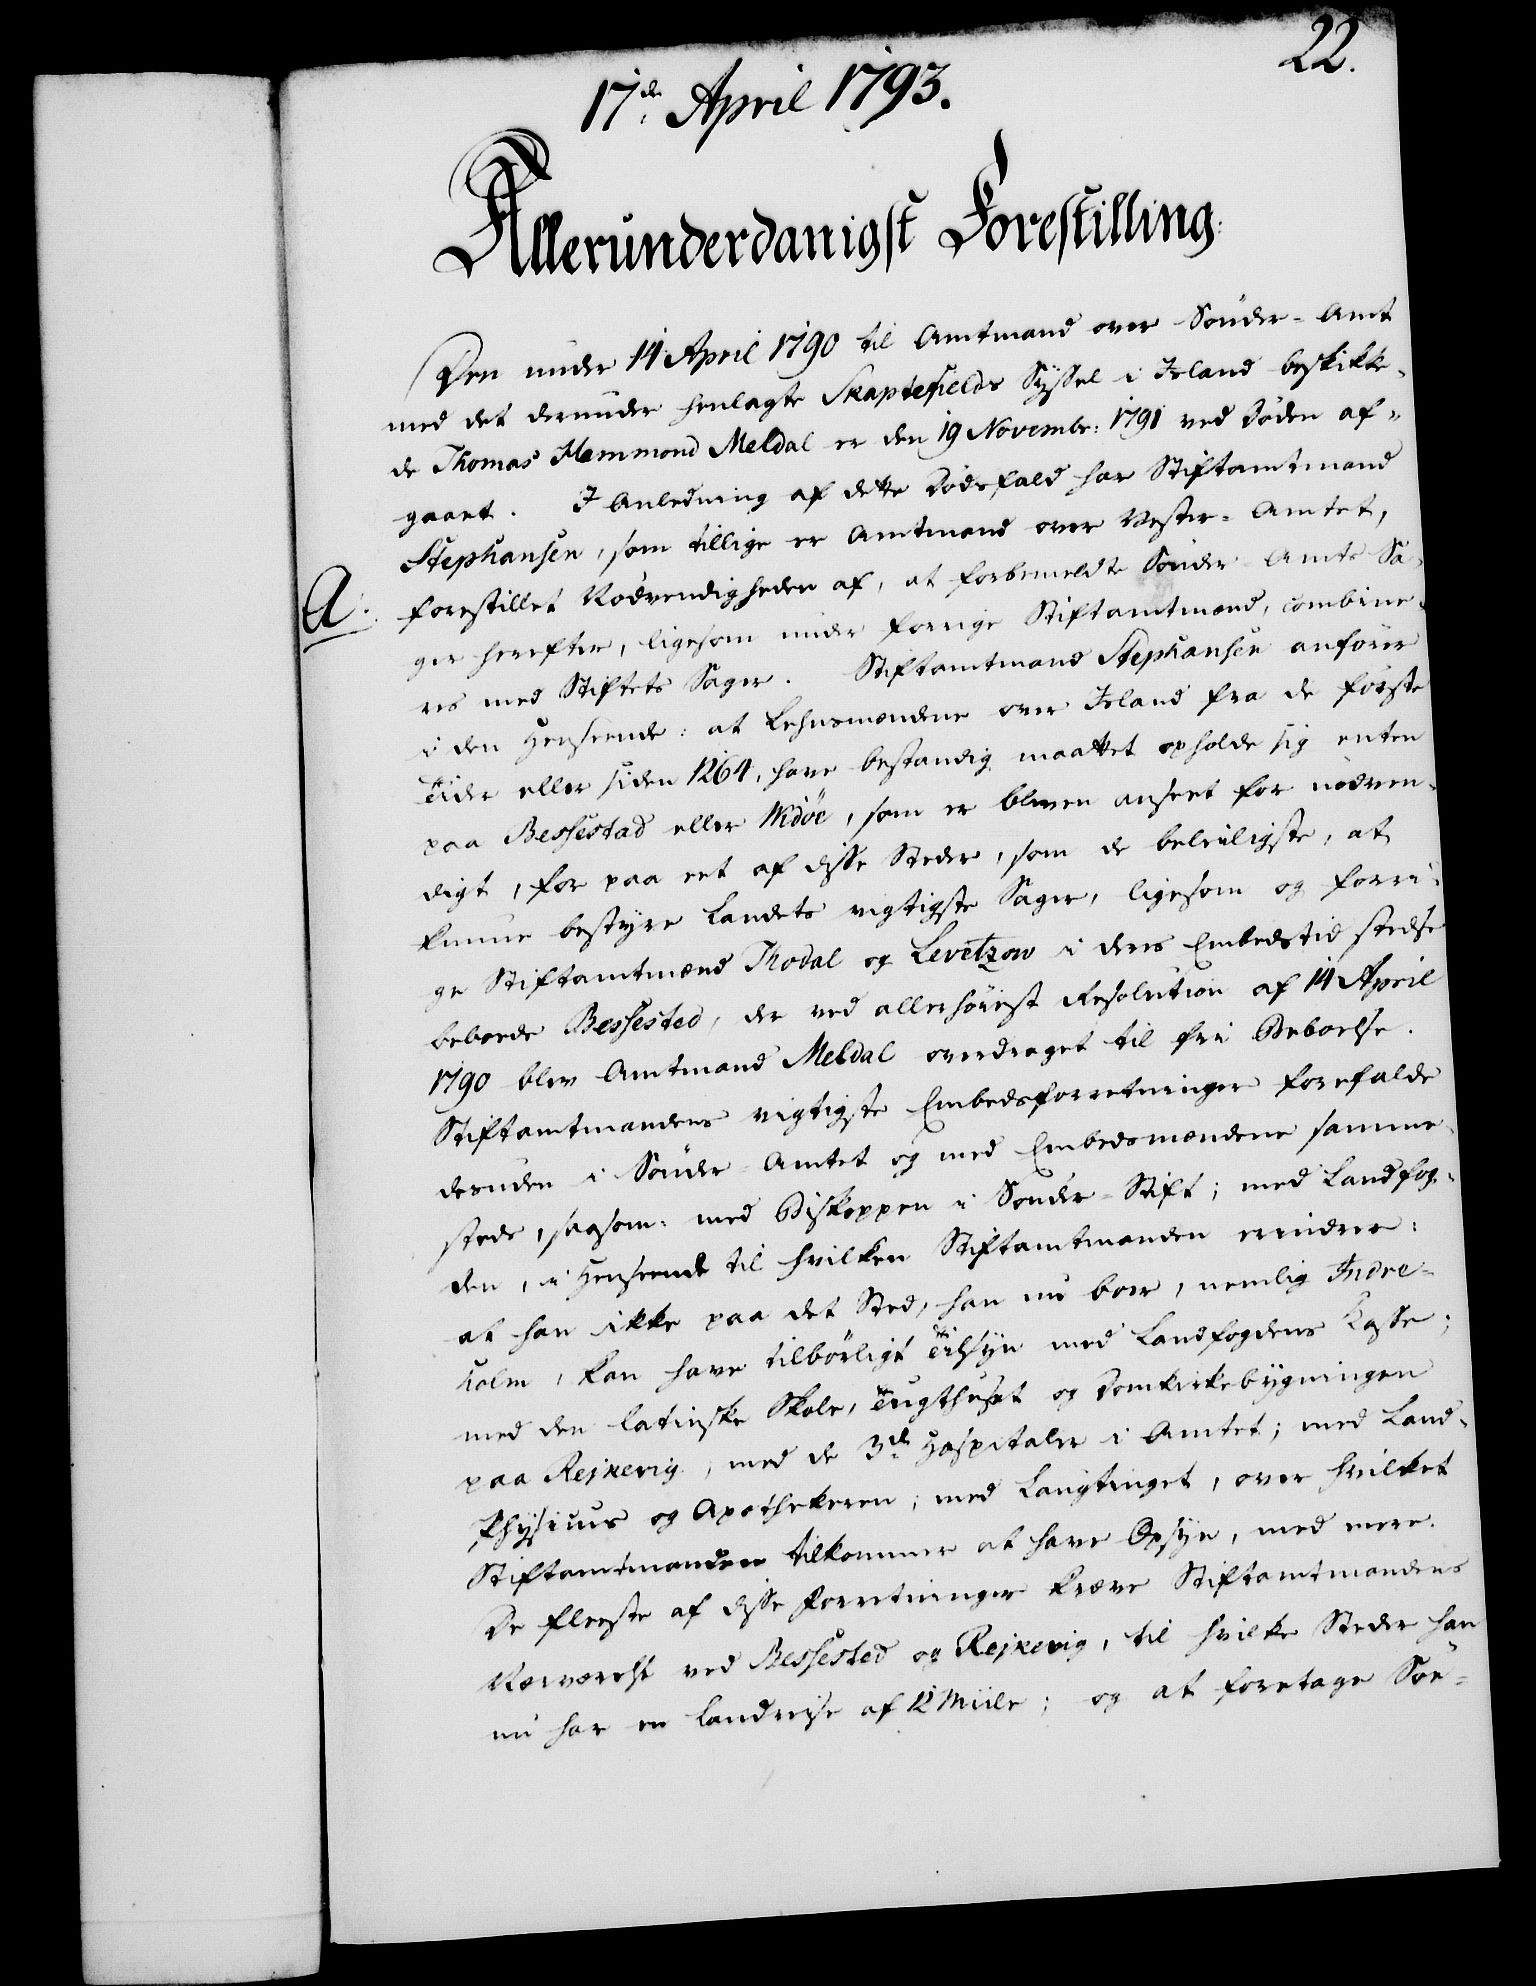 22.
17de April 1793.
Allerunderdanigst Forestilling:
Den under 14 April 1790 til Amtmand over Sønder-Amt
med det derunder henlagte Skaptefields Syssel i Island beskikke-
de Thomas Hammond Meldal er den 19 Novembr: 1791 ved Døden af-
gaaet. I Anledning af dette Dødsfald har Stiftamtmand
Stephansen, som tillige er Amtmand over Vester-Amtet,
A.
forestillet Nødvendigheden af, at forbemeldte Sønder-Amts Sa-
ger herefter, ligesom under forrige Stiftamtmænd, combine-
res med Stiftets Sager. Stiftamtmand Stephansen anfører
i den Henseende: at Lehnsmændene over Island fra de første
Tider eller siden 1264, have bestandig maattet opholde sig enten
paa Bessestad eller Widöe, som er bleven anseet for nødven-
digt, for paa eet af disse Steder, som de beleiligste, at
kunne bestyre Landets vigtigste Sager, ligesom og forri-
ge Stiftamtmænd Thodal og Levetzow i deres Embedstid stedse
beboede Bessested, der ved allerhøiest Resolution af 14 April
1790 blev Amtmand Meldal overdraget til frie Beboelse.
Stiftamtmandens vigtigste Embedsforretninger forefalde
desuden i Sønder-Amtet og med Embedsmændene samme-
steds, saasom: med Biskoppen i Sønder-Stift; med Landfog-
den, i Henseende til hvilken Stiftamtmanden erindrer:
at han ikke paa det Sted, han nu boer, nemlig Indre-
holm, kan have tilbørligt Tilsyn med Landfogdens Kasse;
med den latinske Skole, Tugthuset og Domkirkebygningen
paa Rejkevig, med de 3de Hospitaler i Amtet; med Land-
Physicus og Apothekeren; med Laugtinget, over hvilket
Stiftamtmanden tilkommer at have Opsyn, med mere.
De fleeste af disse Forretninger kræve Stiftamtmandens
Nærværelse ved Bessested og Rejkevig, til hvilke Steder han
nu har en Landreise af 12 Miile; og at foretage Søe-